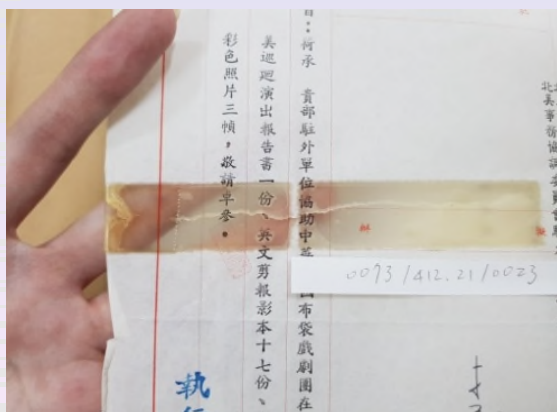 北美事務協調委員
自：荷承　貴部駐外單位協助中華
布袋戲劇團在
美巡迴演出報告書一份、英文剪報影本十七份、
彩色照片三幀，敬請卓參。
0073/412.21/0023
執